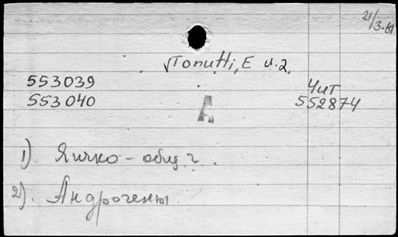 21/3-61
√Tonutti, E и.2,
553039 Чит
553040 A 552874
1). Яичко - общ. г.
2). Андрогены.